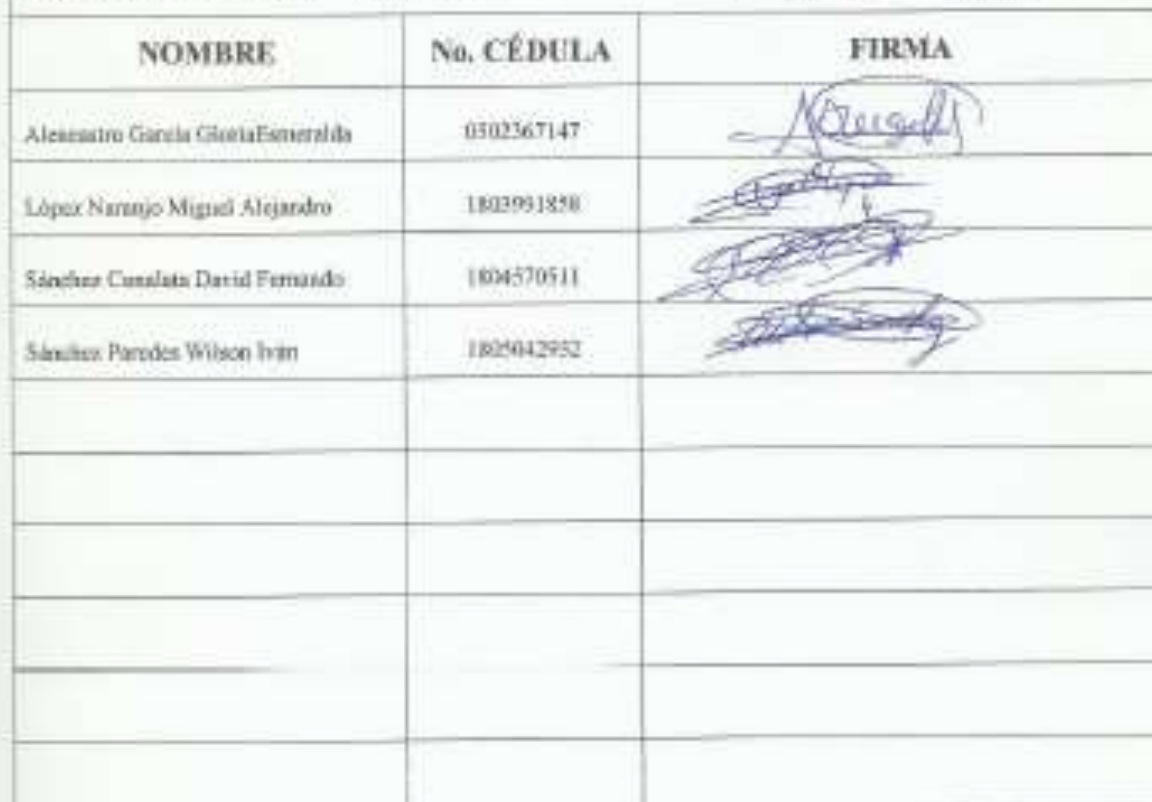 NOMBRE No. CÉDULA FIRMA
García GloriaEsmeralda 0502367147
López Naranjo Miguel Alejandro 1803991858
Sánchez David Fernando 1804570511
Sánchez Paredes Wilson Iván 1805042952